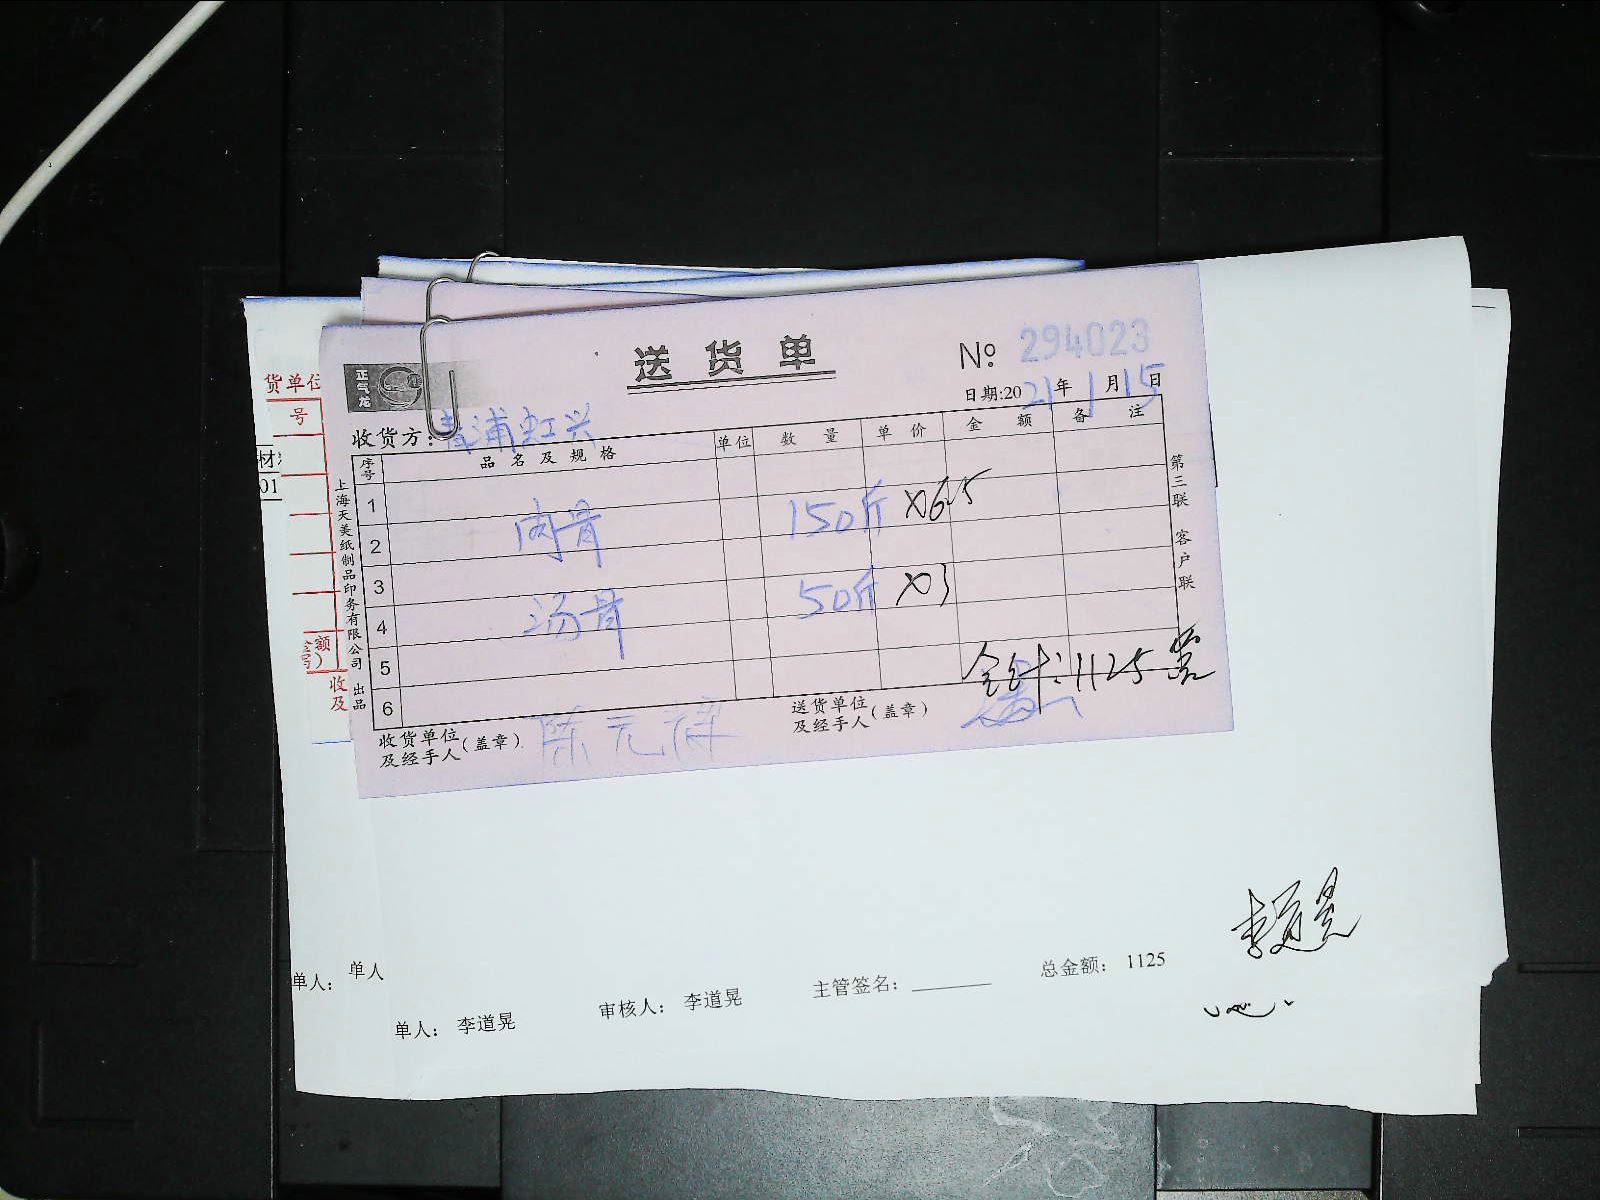 送货单
№ 294023
正气龙
日期:2021年1月15日
收货方:青浦虹兴
序号 品名及规格 单位 数量 单价 金额 备注
1
肉骨 150斤 ×6.5
2
3
汤骨 50斤 ×3
4
5
6
合计:1125
收货单位及经手人(盖章) 陈元禄
送货单位及经手人(盖章)
上海天美纸制品印务有限公司 出品
第三联 客户联
货单位
号
材
01
额
收
及
单人: 单人
单人: 李道晃 审核人: 李道晃 主管签名: 总金额: 1125
李道晃